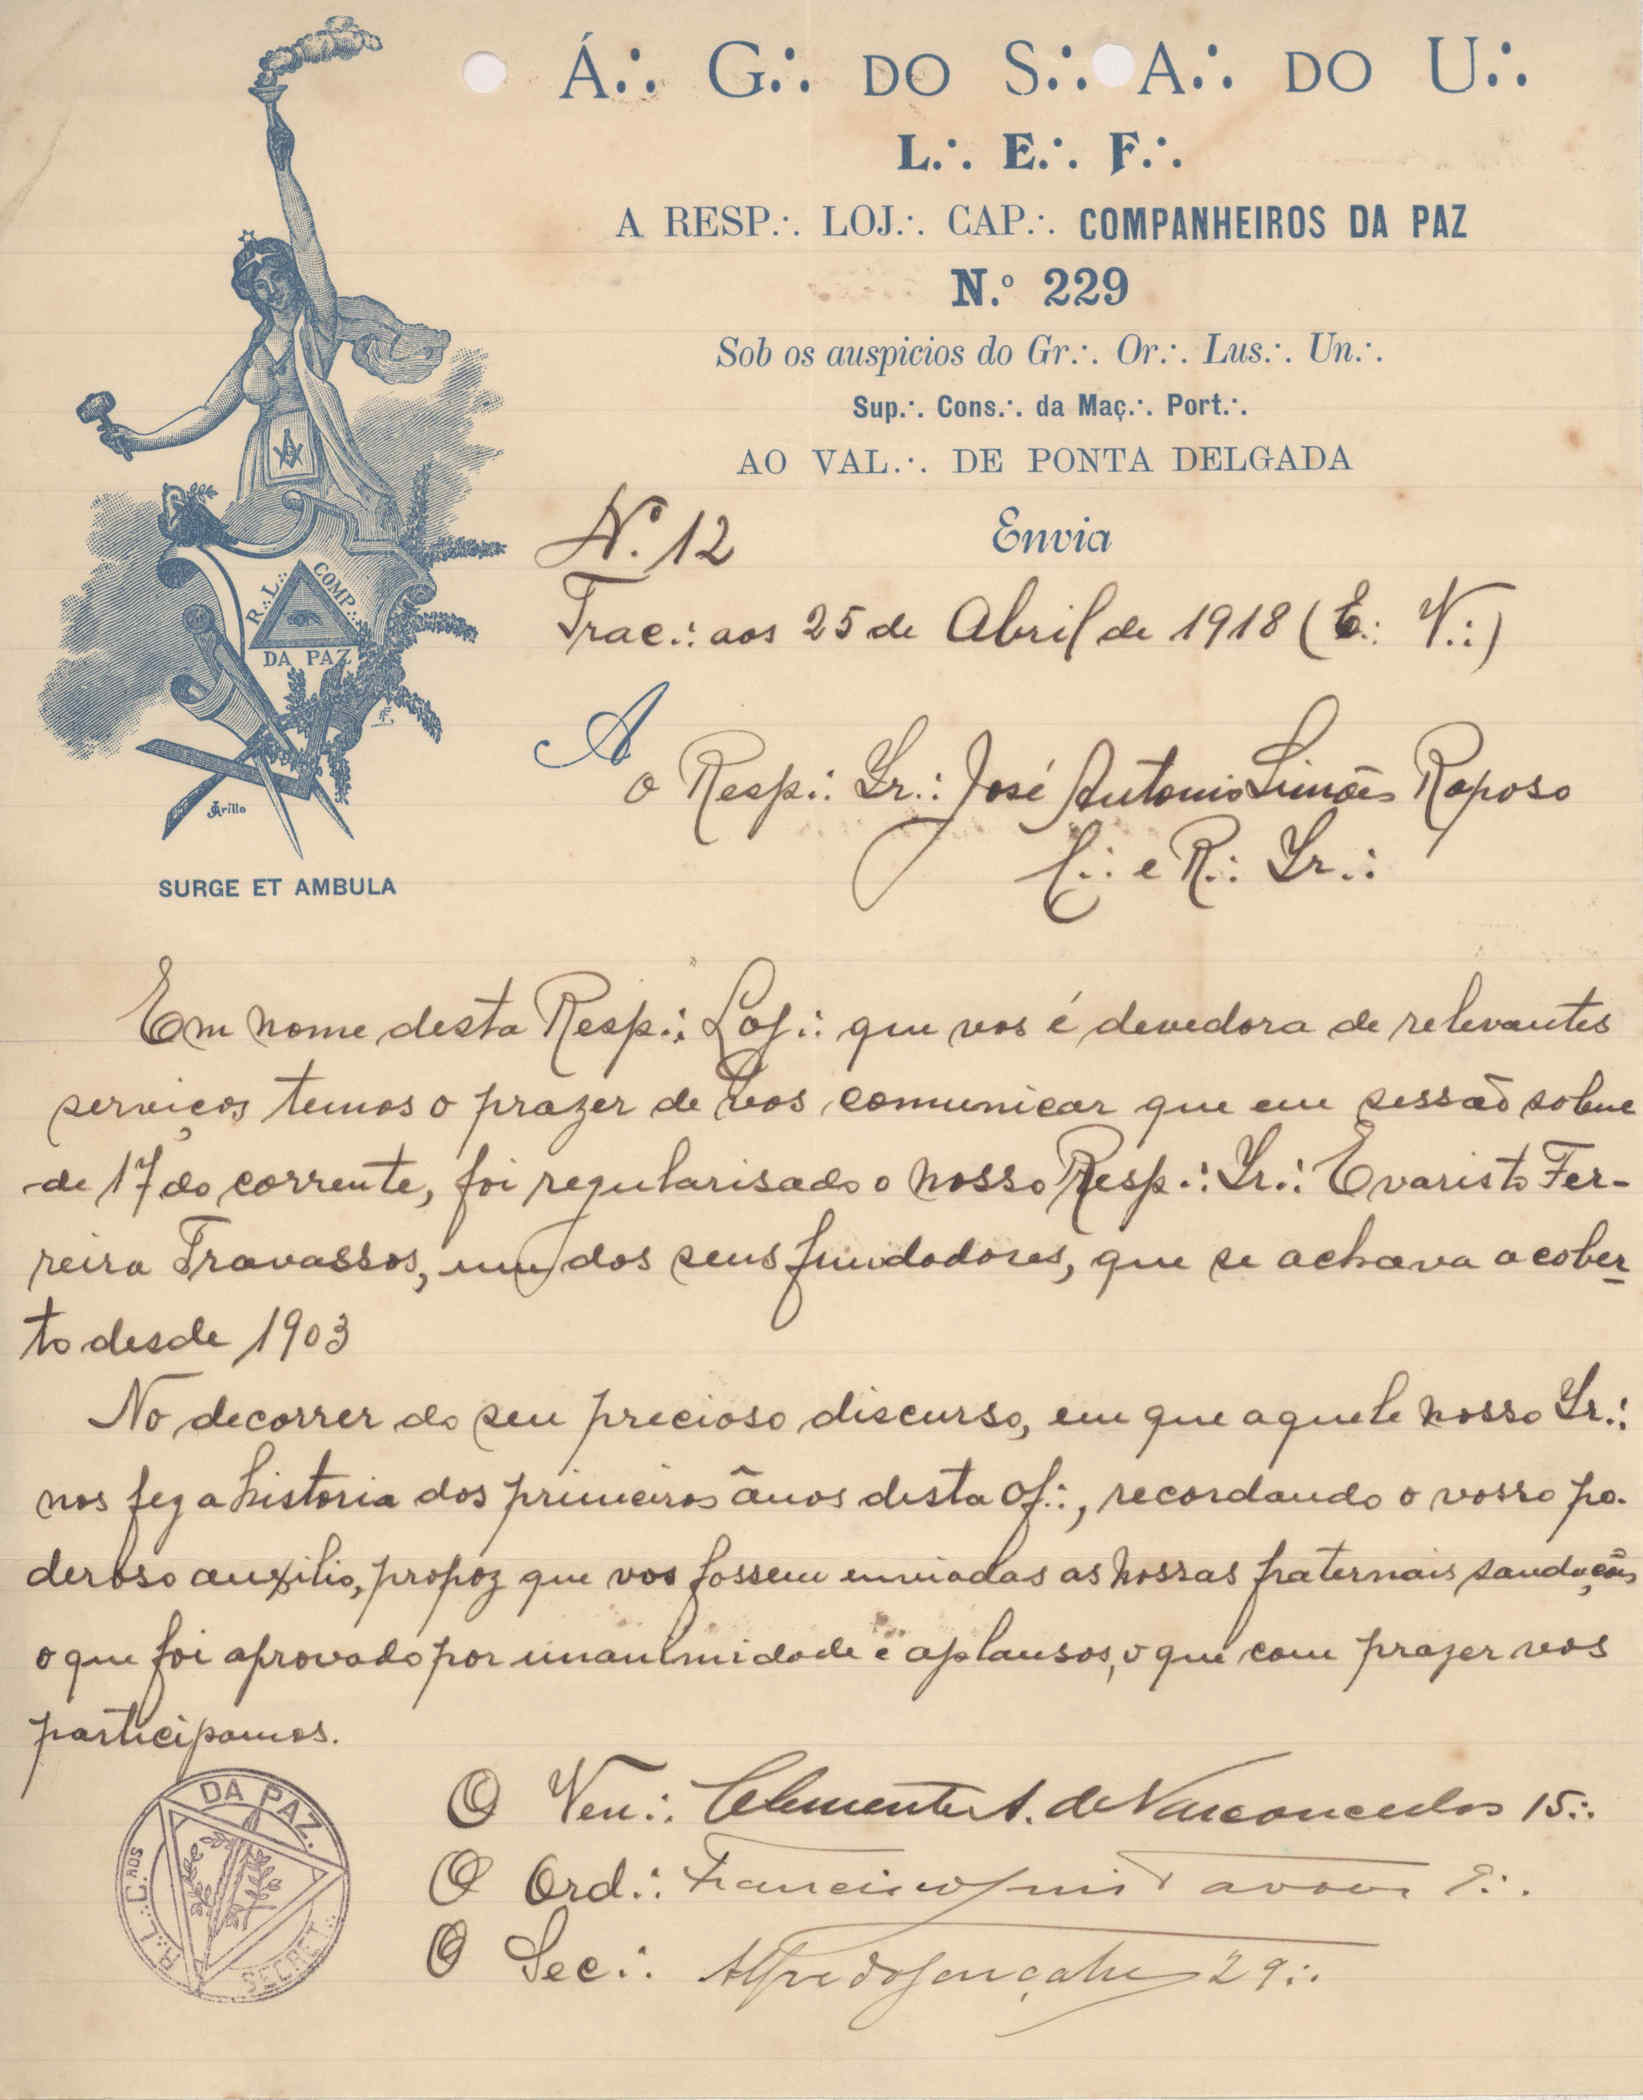 Á∴ G∴ DO S∴ A∴ DO U∴
L∴ E∴ F∴
A RESP∴ LOJ∴ CAP∴ COMPANHEIROS DA PAZ
N.º 229
Sob os auspicios do Gr∴ Or∴ Lus∴ Un∴
Sup∴ Cons∴ da Maç∴ Port∴
AO VAL∴ DE PONTA DELGADA
Nº 12 Envia
Trac∴ aos 25 de Abril de 1918 (E∴ V∴)
R∴ L∴ COMP∴
DA PAZ
Arillo
SURGE ET AMBULA
A
o Resp∴ Ir∴ José Antonio Simões Raposo
C∴ e R∴ Ir∴
Em nome desta Resp∴ Loj∴ que vos é devedora de relevantes
serviços temos o prazer de vos comunicar que em sessão solene
de 17 do corrente, foi regularisado o nosso Resp∴ Ir∴ Evaristo Fer-
reira Travassos, um dos seus fundadores, que se achava a cober-
to desde 1903
No decorrer do seu precioso discurso, em que aquele nosso Ir∴
nos fez a historia dos primeiros ânos desta Of∴, recordando o vosso po-
deroso auxilio, propoz que vos fossem enviadas as nossas fraternais saudações
o que foi aprovado por unanimidade e aplausos, o que com prazer vos
participamos.
O Ven∴ Clemente A. de Vasconcelos 15∴
O Ord∴ Francisco Luis Tavares
O Sec∴ Alfredo Gonçalves 29∴
R∴ L∴ C.HOS DA PAZ.
SECRET∴